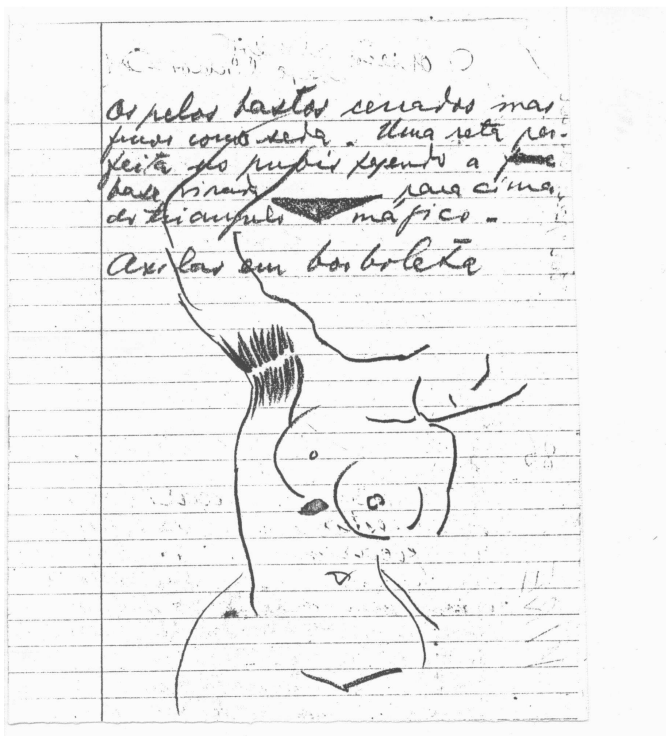 Os pelos bastos cerrados mas
finos como seda. Uma reta per-
feita no pubis fazendo a
base virada para cima
do triangulo mágico.
Axilas em borboleta